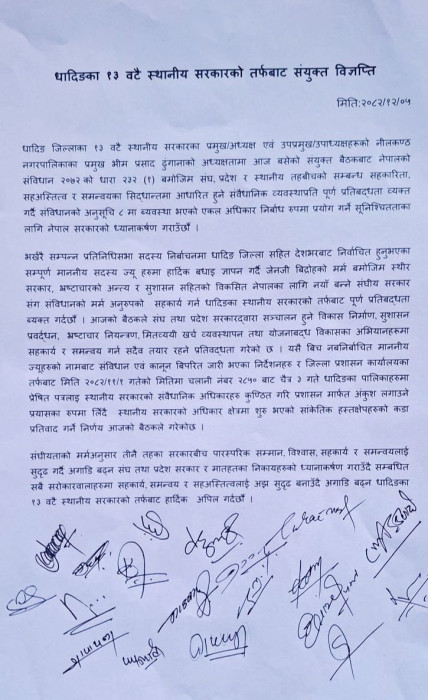 धादिङका १३ वटै स्थानीय सरकारको तर्फबाट संयुक्त विज्ञप्ति
मिति:२०८२/१२/०५
धादिङ जिल्लाका १३ वटै स्थानीय सरकारका प्रमुख/अध्यक्ष एवं उपप्रमुख/उपाध्यक्षहरूको नीलकण्ठ
नगरपालिकाका प्रमुख भीम प्रसाद ढुंगानाको अध्यक्षतामा आज बसेको संयुक्त बैठकबाट नेपालको
संविधान २०७२ को धारा २३२ (१) बमोजिम संघ, प्रदेश र स्थानीय तहबीचको सम्बन्ध सहकारिता,
सहअस्तित्व र समन्वयका सिद्धान्तमा आधारित हुने संवैधानिक व्यवस्थाप्रति पूर्ण प्रतिबद्धता व्यक्त
गर्दै संविधानको अनुसूचि ८ मा व्यवस्था भएको एकल अधिकार निर्बाध रुपमा प्रयोग गर्न सूनिश्चितताका
लागि नेपाल सरकारको ध्यानाकर्षण गराउँछौं ।
भर्खरै सम्पन्न प्रतिनिधिसभा सदस्य निर्वाचनमा धादिङ जिल्ला सहित देशभरबाट निर्वाचित हुनुभएका
सम्पूर्ण माननीय सदस्य ज्यू हरुमा हार्दिक बधाइ ज्ञापन गर्दै जेनजी बिद्रोहको मर्म बमोजिम स्थीर
सरकार, भ्रष्टाचारको अन्त्य र सुशासन सहितको विकसित नेपालका लागि नयाँ बन्ने संघीय सरकार
संग संविधानको मर्म अनुरुपको सहकार्य गर्न धादिङका स्थानीय सरकारको तर्फबाट पूर्ण प्रतिबद्धता
ब्यक्त गर्दछौं । आजको बैठकले संघ तथा प्रदेश सरकारद्वारा सञ्चालन हुने विकास निर्माण, सुशासन
प्रवर्द्धन, भ्रष्टाचार नियन्त्रण, मितव्ययी खर्च व्यवस्थापन तथा योजनाबद्ध विकासका अभियानहरूमा
सहकार्य र समन्वय गर्न सदैव तयार रहने प्रतिवद्धता गरेको छ । यसै बिच नवनिर्वाचित माननीय
ज्यूहरुको नामबाट संविधान एवं कानून बिपरित जारी भएका निर्देशनहरु र जिल्ला प्रशासन कार्यालयका
तर्फबाट मिति २०८२/११/१ गतेको मितिमा चलानी नंबर २८५० बाट चैत्र ३ गते धादिङका पालिकाहरुमा
प्रेषित पत्रलाइ स्थानीय सरकारको संवैधानिक अधिकारहरु कुण्ठित गरि प्रशासन मार्फत अंकुश लगाउने
प्रयासका रुपमा लिँदै स्थानीय सरकारको अधिकार क्षेत्रमा शुरु भएको सांकेतिक हस्तक्षेपहरुको कडा
प्रतिवाद गर्ने निर्णय आजको बैठकले गरेकोछ ।
संघीयताको मर्मअनुसार तीनै तहका सरकारबीच पारस्परिक सम्मान, विश्वास, सहकार्य र समन्वयलाई
सुदृढ गर्दै अगाडि बढ्न संघ तथा प्रदेश सरकार र मातहतका निकायहरुको ध्यानाकर्षण गराउँदै सम्बधित
सबै सरोकारवालाहरुमा सहकार्य, समन्वय र सहअस्तित्वलाई अझ सुदृढ बनाउँदै अगाडी बढ्न धादिङका
१३ वटै स्थानीय सरकारको तर्फबाट हार्दिक अपिल गर्दछौं ।